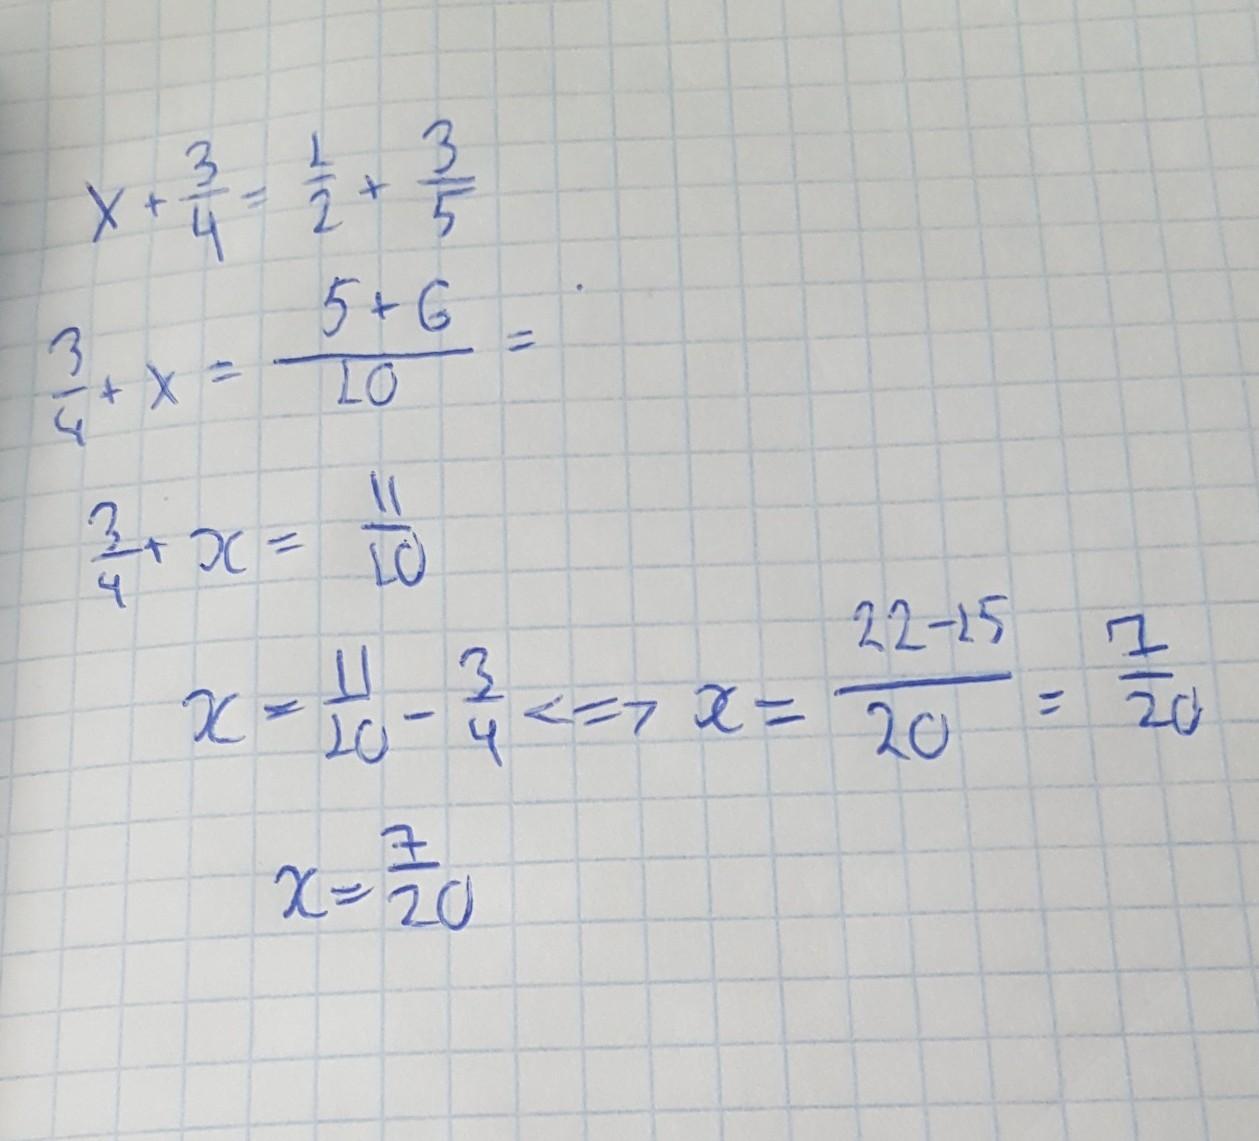 x + 3/4 = 1/2 + 3/5
3/4 + x = (5+6)/10 =
3/4 + x = 11/10
x = 11/10 - 3/4 <=> x = (22-15)/20 = 7/20
x = 7/20